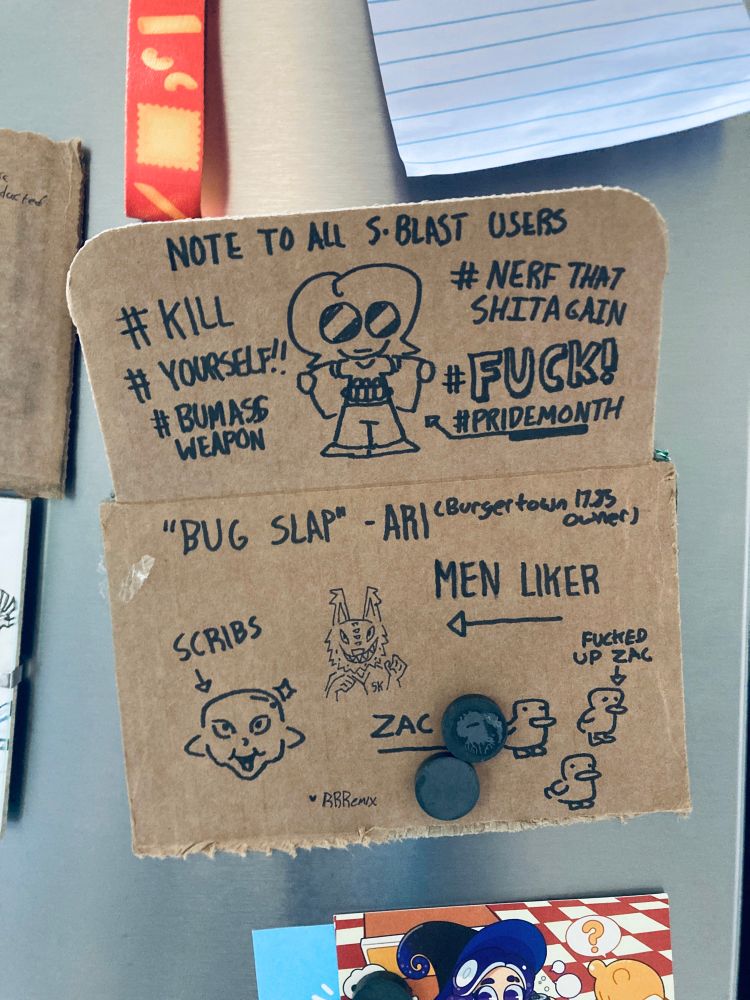 NOTE TO ALL S.BLAST USERS
# KILL
# YOURSELF!!
# BUMASS
WEAPON
# NERF THAT
SHITAGAIN
#FUCK!
#PRIDEMONTH
"BUG SLAP" - ARI (Burgertown 17.85
owner)
MEN LIKER
SCRIBS
SK
FUCKED
UP ZAC
ZAC
♥ RRRemix
ducted
?